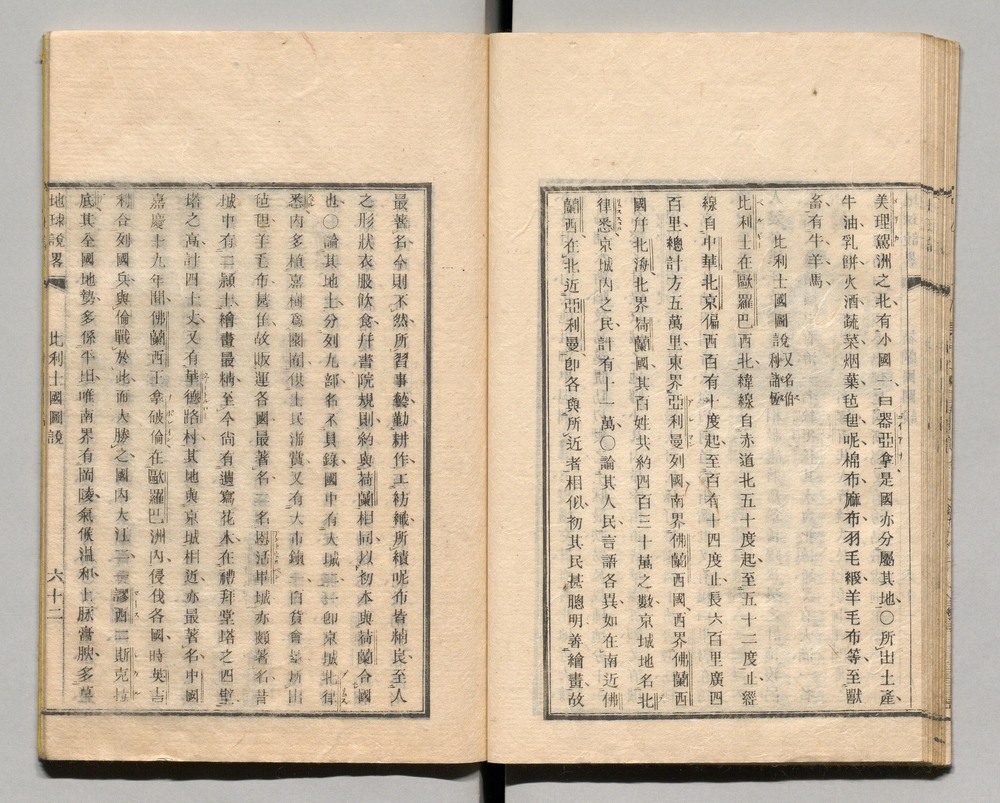 美理駕洲之北有小國一曰器亞拿是國亦分屬其地〇所出土產
牛油乳餅火酒蔬菜烟葉毡毯呢棉布麻布羽毛緞羊毛布等至獸
畜有牛羊馬
比利士國圖說又名伯利諸恆
比利士在歐羅巴西北緯線自赤道北五十度起至五十二度止經
線自中華北京偏西百有十度起至百有十四度止長六百里廣四
百里總計方五萬里東界亞利曼列國南界佛蘭西國西界佛蘭西
國幷北海北界荷蘭國其百姓共約四百三十萬之數京城地名北
律悉京城內之民計有十一萬〇論其人民言語各異如在南近佛
蘭西在北近亞利曼卽各與所近者相似初其民甚聰明善繪畫故
最善名今則不然所習事藝勤耕作工紡織所績呢布皆精良至人
之形狀衣服飲食幷書院規則約與荷蘭相同以初本與荷蘭合國
也〇論其地土分列九部名不具錄國中有大城 卽京城北律
悉內多植嘉樹為園囿供士民游賞又有大市鎮 白貨會 所出
毡毯羊毛布居住故販運各國最著名 名 活車城亦頗著名昔
城中有 顯士繪畫最精至今尚有遺寫花木在禮拜堂塔之四壁
塔之高計四十丈又有華德路村其地與京城相近亦最著名中國
嘉慶十九年間佛蘭西王拿破倫在歐羅巴洲內侵伐各國時英吉
利合列國兵與倫戰於此而大勝之國內大江二 謬西二斯克拉
底其全國地勢多係平坦唯南界有岡陵氣候溫和土脉膏腴多蓋
地球說畧 比利士國圖說 六十二